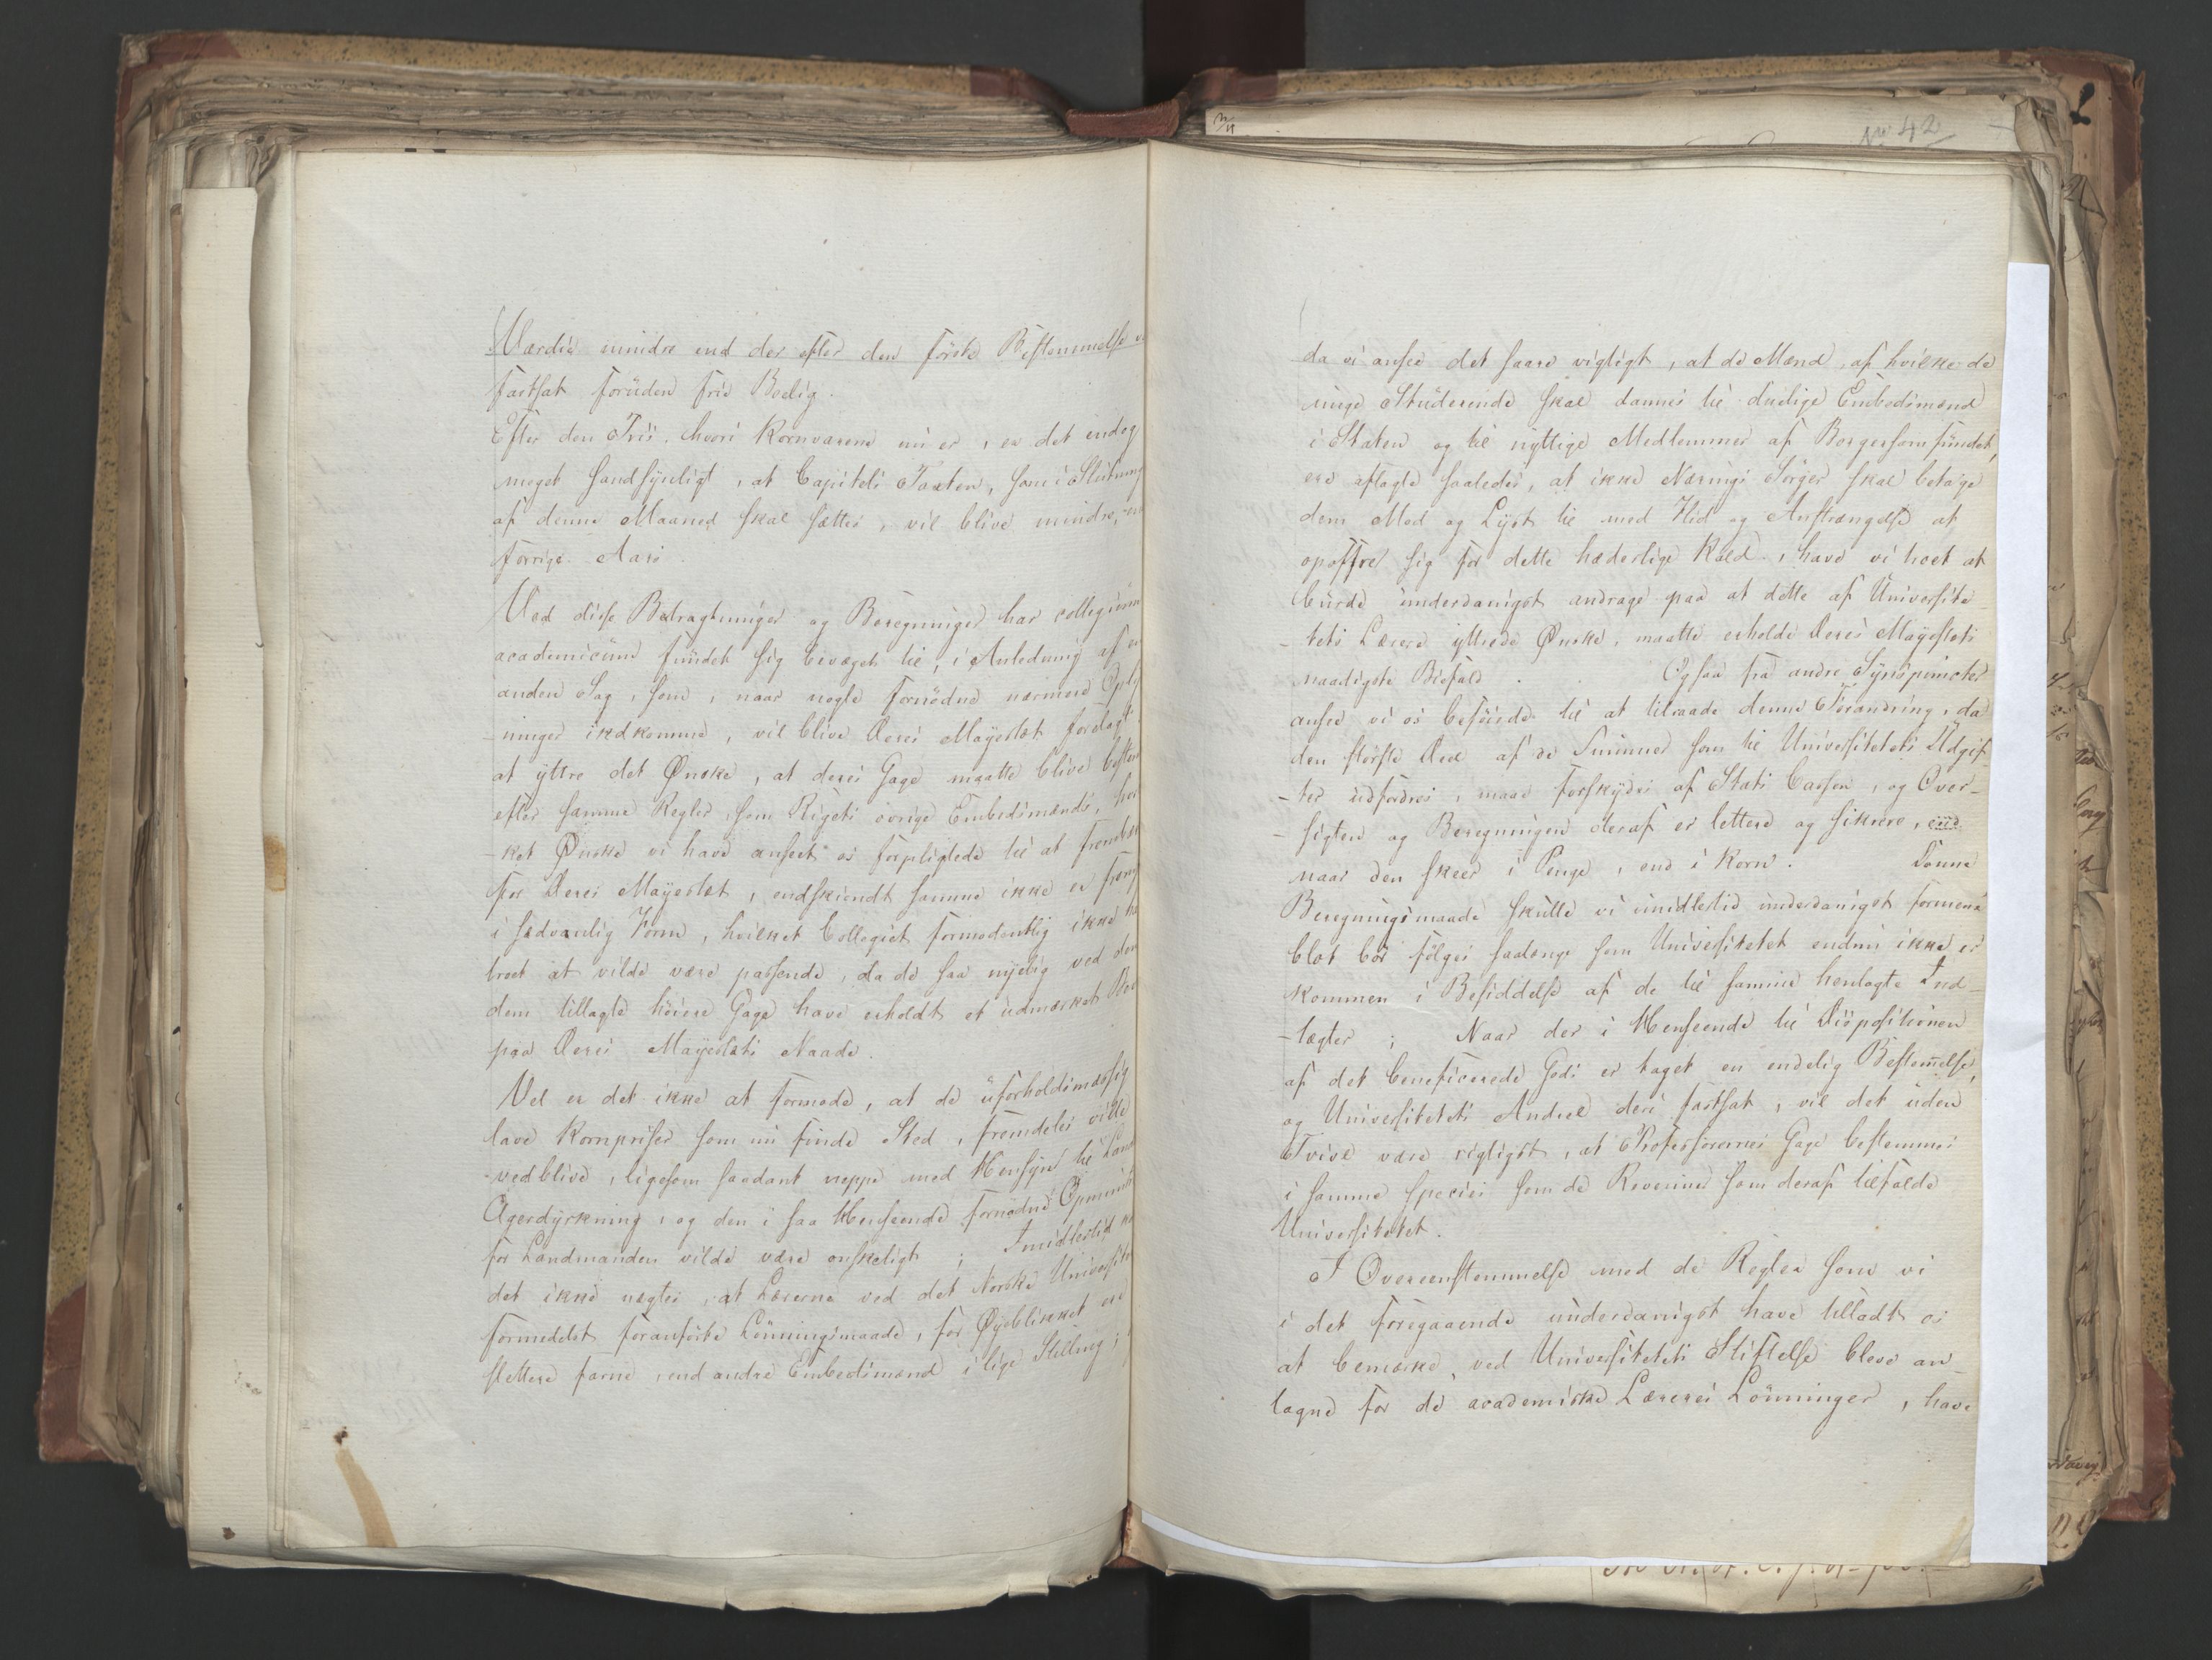 Værdie mindre end der efter den förste Bestemmelse
fastsat foruden frie Bolig.
Efter den Priis, hvori Kornvarene nu er, er det endog
meget sandsynligt, at Capitels Taxten, som i Slutning
af denne Maaned skal sættes, vil blive mindre, end
forrige Aars.
Ved disse Betragtninger og Beregninger har collegium
academicum fundet sig bevæget til, i Anledning af en
anden Sag, som, naar nogle fornödne nærmere Oplys
-ninger indkomme, vil blive Deres Mayestæt forelagt
at yttre det Ønske, at deres Gage maatte blive bestem
efter samme Regler, som Rigets övrige Embedsmænds, hvil
-ket Ønske vi have anseet os forpligtede til at frembære
for Deres Mayestæt, endskiöndt samme ikke er frem
i sædvanlig Form, hvilket Collegiet formodentlig ikke har
troet at vilde være passende, da de saa nyelig ved den
dem tillagte höiere Gage have erholdt et udmærket Bev
paa Deres Mayestæts Naade.
Vel er det ikke at formode, at de uforholdsmæssig
lave Kornpriser som nu finde Sted, fremdeles ville
vedblive, ligesom saadant neppe med Hensyn til Land
Agerdyrkning, og den i saa Henseende fornödne Opmunt
for Landmanden vilde være önskeligt; Imidlertid
det ikke nægtes, at Lærerne ved det Norske Universitet
formedelst foranförte Lönningsmaade, for Øyeblikket ere
slettere farne, end andre Embedsmænd i lige Stilling;
No 42
da vi ansee det saare vigtigt, at de Mænd, af hvilke de
unge Studerende skal dannes til duelige Embedsmænd
i Staten og til nyttige Medlemmer af Borgersamfundet,
ere aflagte saaledes, at ikke Nærings Sorger skal betage
dem Mod og Lyst til med Flid og Anstrængelse at
opoffre sig for dette hæderlige Kald, have vi troet at
burde underdanigst andrage paa at dette af Universite
-tets Lærere yttrede Ønske, maatte erholde Deres Mayestæts
naadigste Bifald. Ogsaa fra andre Synspuncter
ansee vi os beföiede til at tilraade denne Forandring, da
den störste Deel af de Summer som til Universitetets Udgif
-ter udfordres, maae forskydes af Stats Cassen, og Over-
-sigten og Beregningen deraf er lettere og sikkrere,
naar den skeer i Penge, end i Korn. Denne
Beregningsmaade skulle vi imidlertid underdanigst formene
blot bör fölges saalænge som Universitetet endnu ikke er
kommen i Besiddelse af de til samme henlagte Ind-
-tægter; Naar der i Henseende til Dispositionen
af det beneficerede Gods er taget en endelig Bestem̅else,
og Universitetets Andeel deri fastsat, vil det uden
Tvivl være rigtigst, at Professorernes Gage bestemmes
i samme species som de Revenuer som deraf tilfalde
Universitetet.
I Overeenstemmelse med de Regler som vi
i det foregaaende underdanigst have tilladt os
at bemærke ved Universitetets Stiftelse bleve an-
tagne for de academiske Læreres Lönninger, have